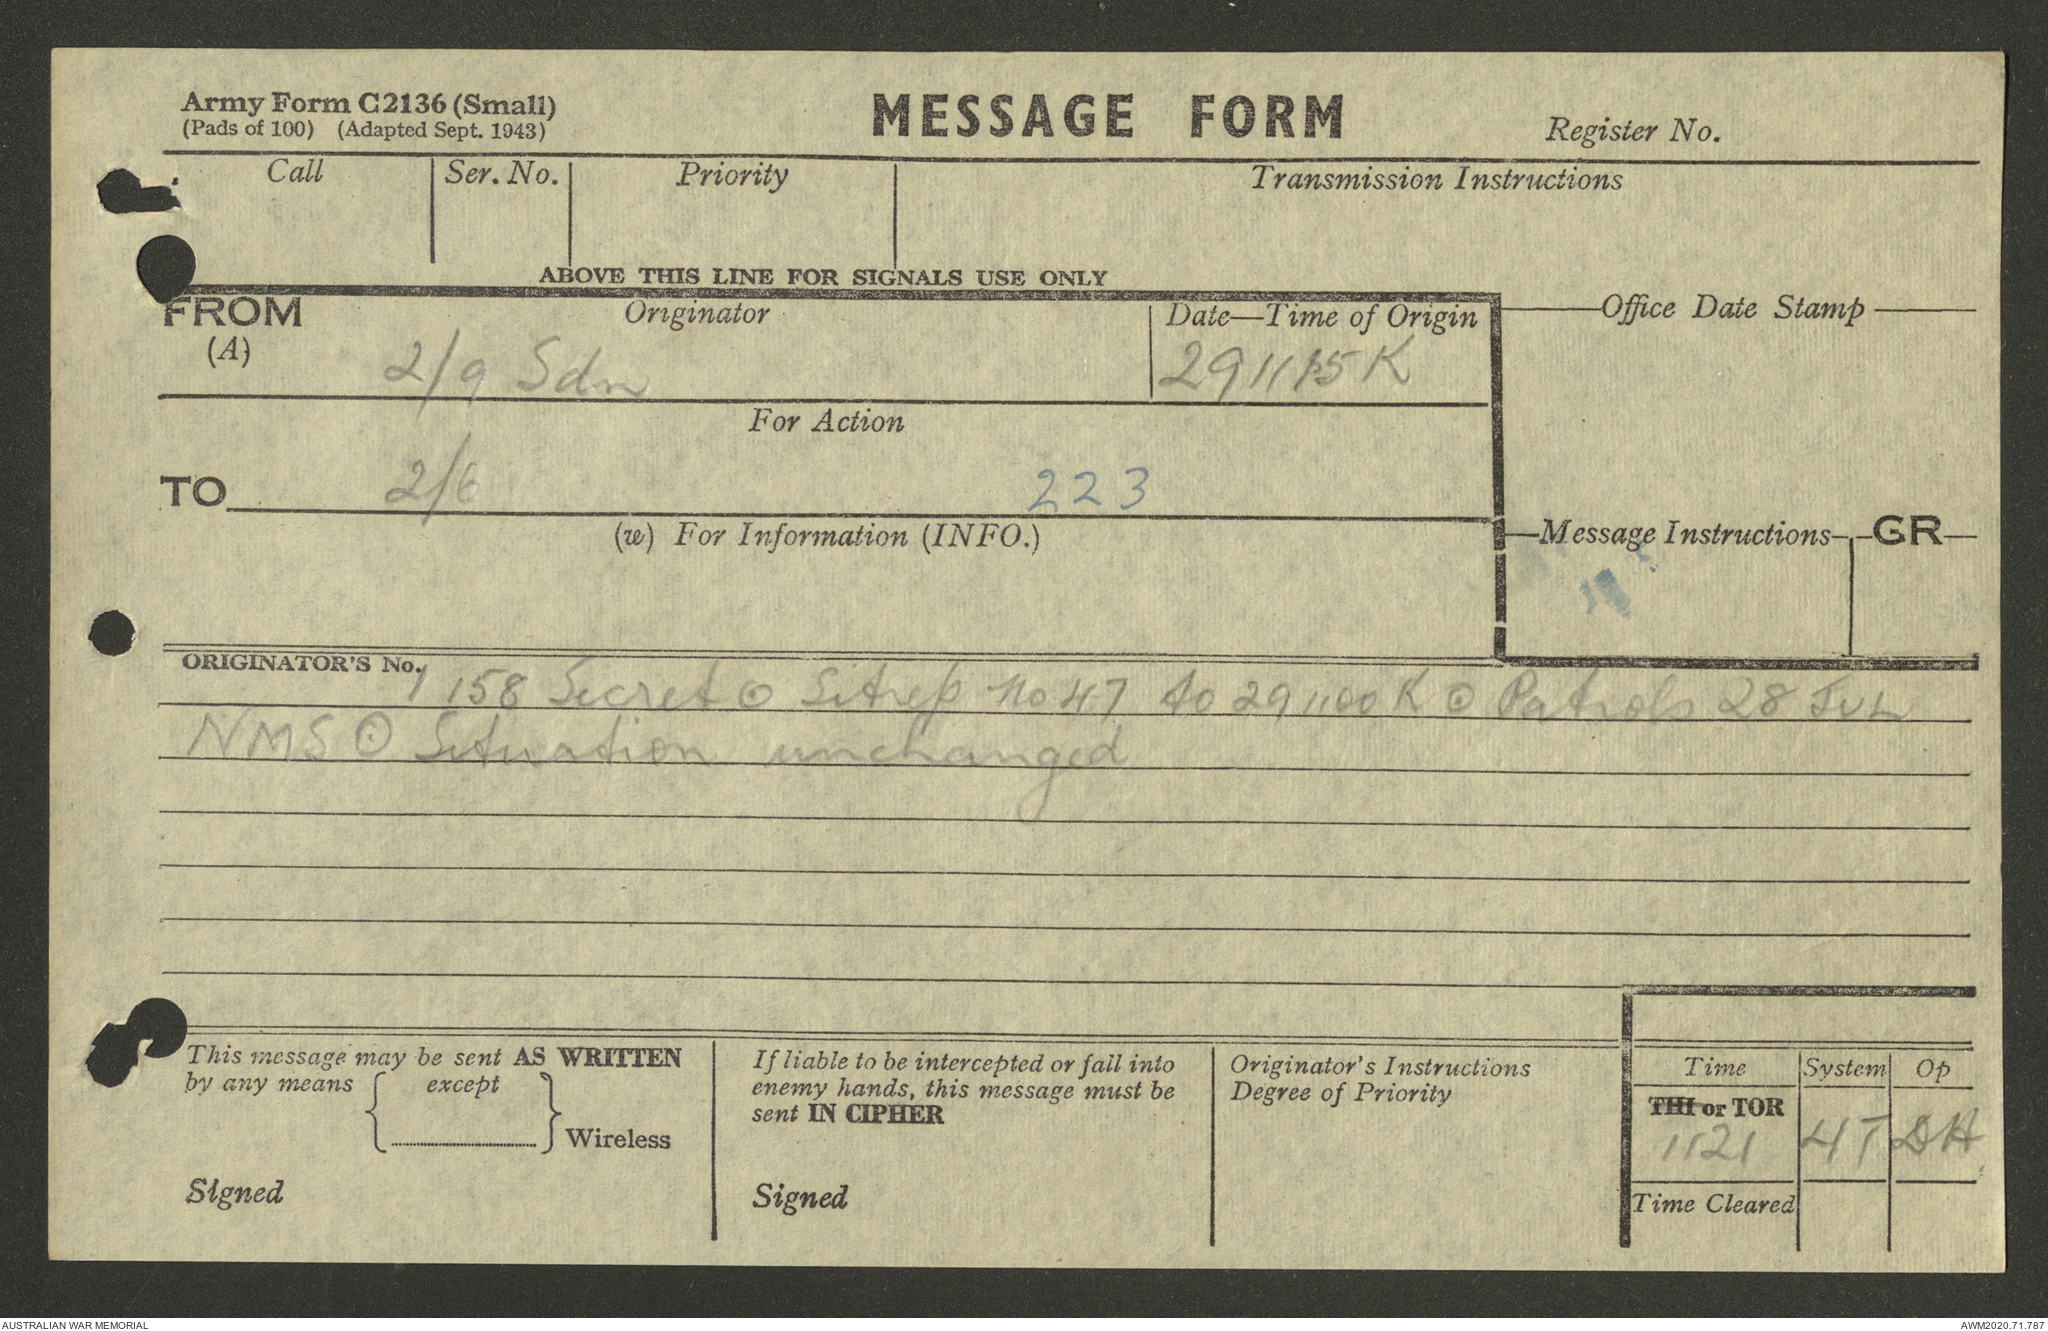 Army Form C2136 (Small)
(Pads of 100) (Adapted Sept. 1943)
MESSAGE FORM
Register No.
Call
Ser. No.
Priority
Transmission Instructions
ABOVE THIS LINE FOR SIGNALS USE ONLY
FROM
(A)
Originator
2/9 Sdn
Date—Time of Origin
291115K
Office Date Stamp
For Action
TO
2/6
223
(w) For Information (INFO.)
Message Instructions
GR
ORIGINATOR'S No.
158 Secret ⊙ Sitrep no 47 to 291100K ⊙ Patrols 28 JUL
NMS ⊙ Situation unchanged
This message may be sent AS WRITTEN
by any means { except
} Wireless
Signed
If liable to be intercepted or fall into
enemy hands, this message must be
sent IN CIPHER
Signed
Originator's Instructions
Degree of Priority
Time
System
Op
THI or TOR
1121
4T
DH
Time Cleared
AUSTRALIAN WAR MEMORIAL
AWM2020.71.787